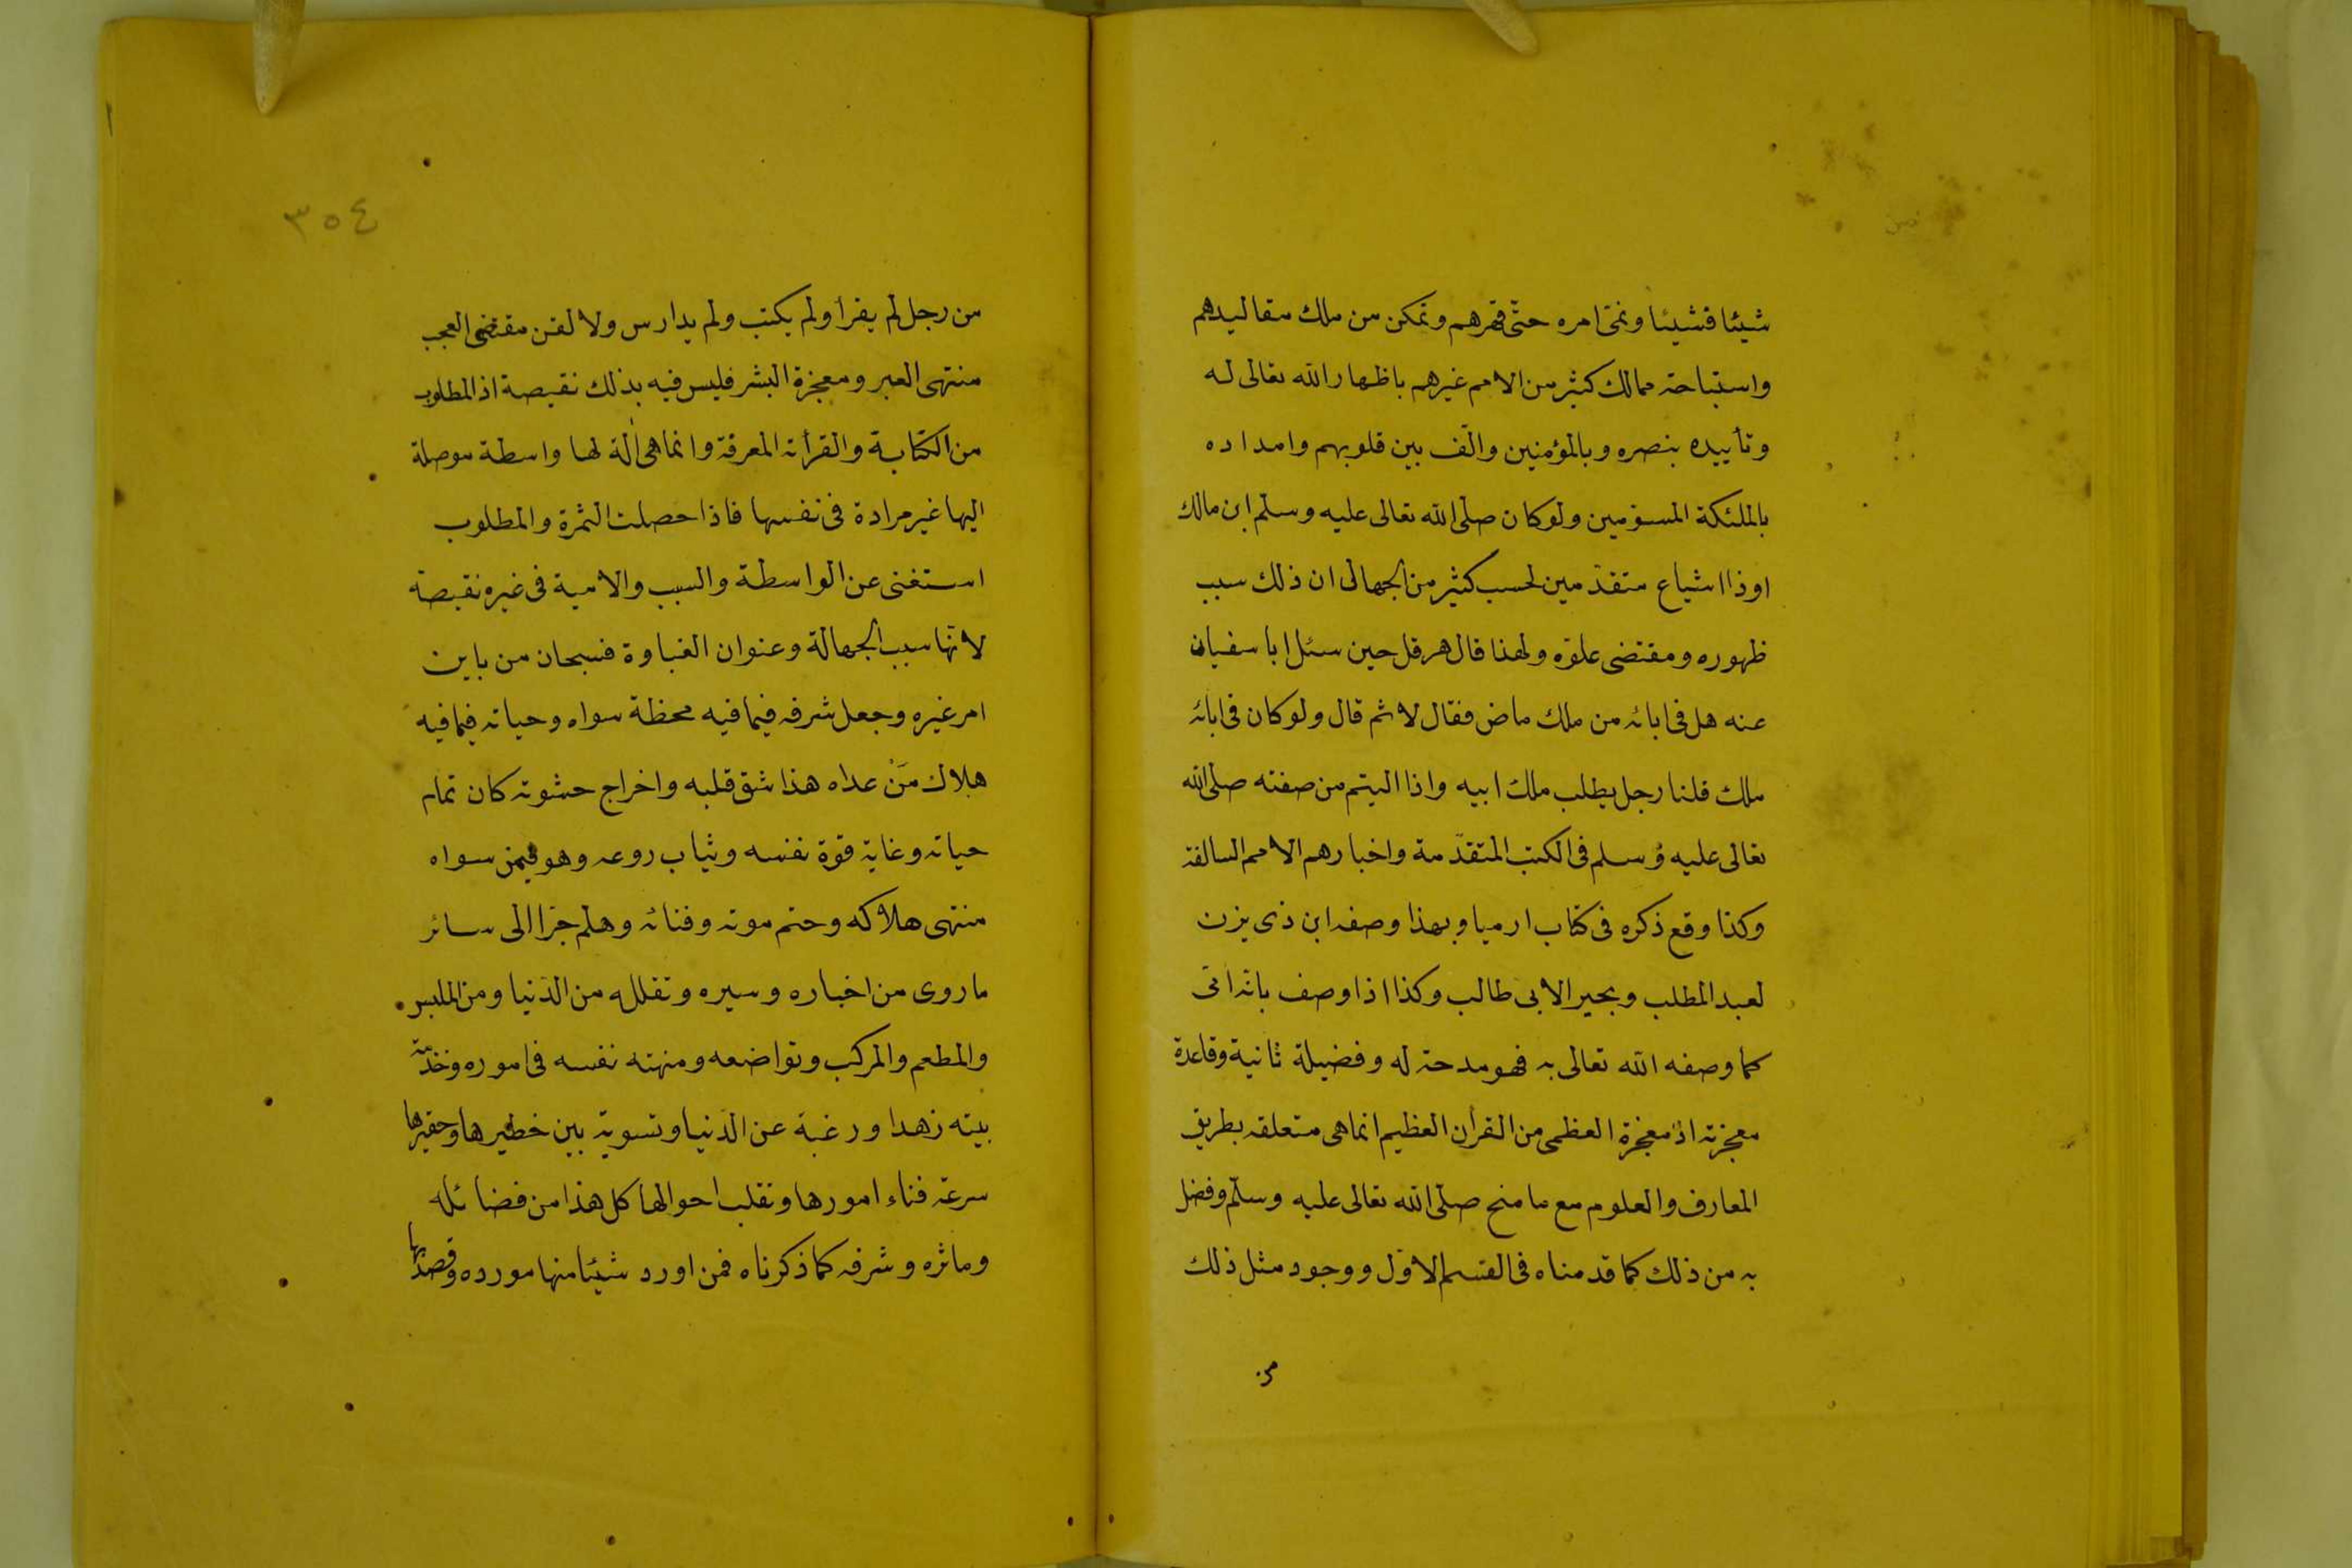 شيئا فشيئا ونمى امره حتّى قهرهم وتمكن من ملك مقاليدهم
واستباحة ممالك كثير من الامم غيرهم باظهار الله تعالى له
وتأييده بنصره وبالمؤمنين والّف بين قلوبهم وامداده
بالملئكة المسوّمين ولو كان صلّى الله تعالى عليه وسلّم ابن مالك
اوذا اشياع متقدّمين لحسب كثير من الجهال ان ذلك سبب
ظهوره ومقتضى علوّه ولهذا قال هرقل حين سئل ابا سفيان
عنه هل فى ابائه من ملك ماض فقال لا ثم قال ولو كان فى ابائه
ملك قلنا رجل يطلب ملك ابيه واذا اليتم من صفته صلّى الله
تعالى عليه وسلم فى الكتب المتقدّمة واخبارهم الامم السالفة
وكذا وقع ذكره فى كتاب ارميا وبهذا وصفه ابن ذى يزن
لعبد المطلب وبحيرا لابى طالب وكذا اذا وصف بانه اتى
كما وصفه الله تعالى به فهو مدحة له وفضيلة ثانية وقاعدة
معجزته اذ معجزة العظمى من القرأن العظيم انما هى متعلقه بطريق
المعارف والعلوم مع ما منح صلّى الله تعالى عليه وسلّم وفضل
به من ذلك كما قدمناه فى القسم الاوّل ووجود مثل ذلك
من
٣٥٤
من رجل لم يقرأ ولم يكتب ولم يدارس ولا لقن مقتضى العجب
منتهى العبر ومعجزة البشر فليس فيه بذلك نقيصة اذ المطلوب
من الكتابة والقرأة المعرفة وانما هى الة لها واسطة موصلة
اليها غير مرادة فى نفسها فاذا حصلت الثمرة والمطلوب
استغنى عن الواسطة والسبب والامية فى غيره نقيصة
لانها سبب الجهالة وعنوان الغباوة فسبحان من باين
امر غيره وجعل شرفه فيما فيه محظة سواه وحياته فيما فيه
هلاك مَنْ عداه هذا شق قلبه واخراج حشوته كان تمام
حياته وغاية قوة نفسه وثياب روعه وهو فيمن سواه
منتهى هلاكه وحتم موته وفنائه وهلم جرا الى سائر
ما روى من اخباره وسيره وتقلله من الدّنيا ومن الملبس
والمطعم والمركب وتواضعه ومنهته نفسه فى اموره وخدمة
بيته زهدا ورغبة عن الدّنيا وتسوية بين خطيرها وحقيرها
سرعة فناء امورها وتقلب احوالها كل هذا من فضائله
وماثره وشرفه كما ذكرناه فمن اورد شيئا منها مورده وقصد بها